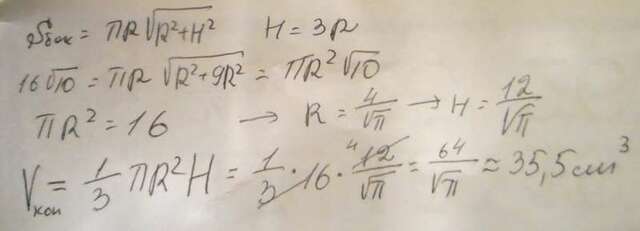 Sбок = πR√(R²+H²) H = 3R
16√10 = πR √(R²+9R²) = πR²√10
πR² = 16 → R = 4/√π → H = 12/√π
Vкон = 1/3 πR²H = 1/3 · 16 · 4 12/√π = 64/√π ≈ 35,5 см³